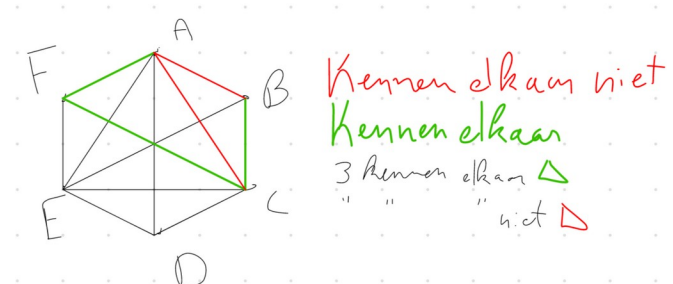 A
F
B
E
C
D
Kennen elkaar niet
Kennen elkaar
3 kennen elkaar
" " " niet